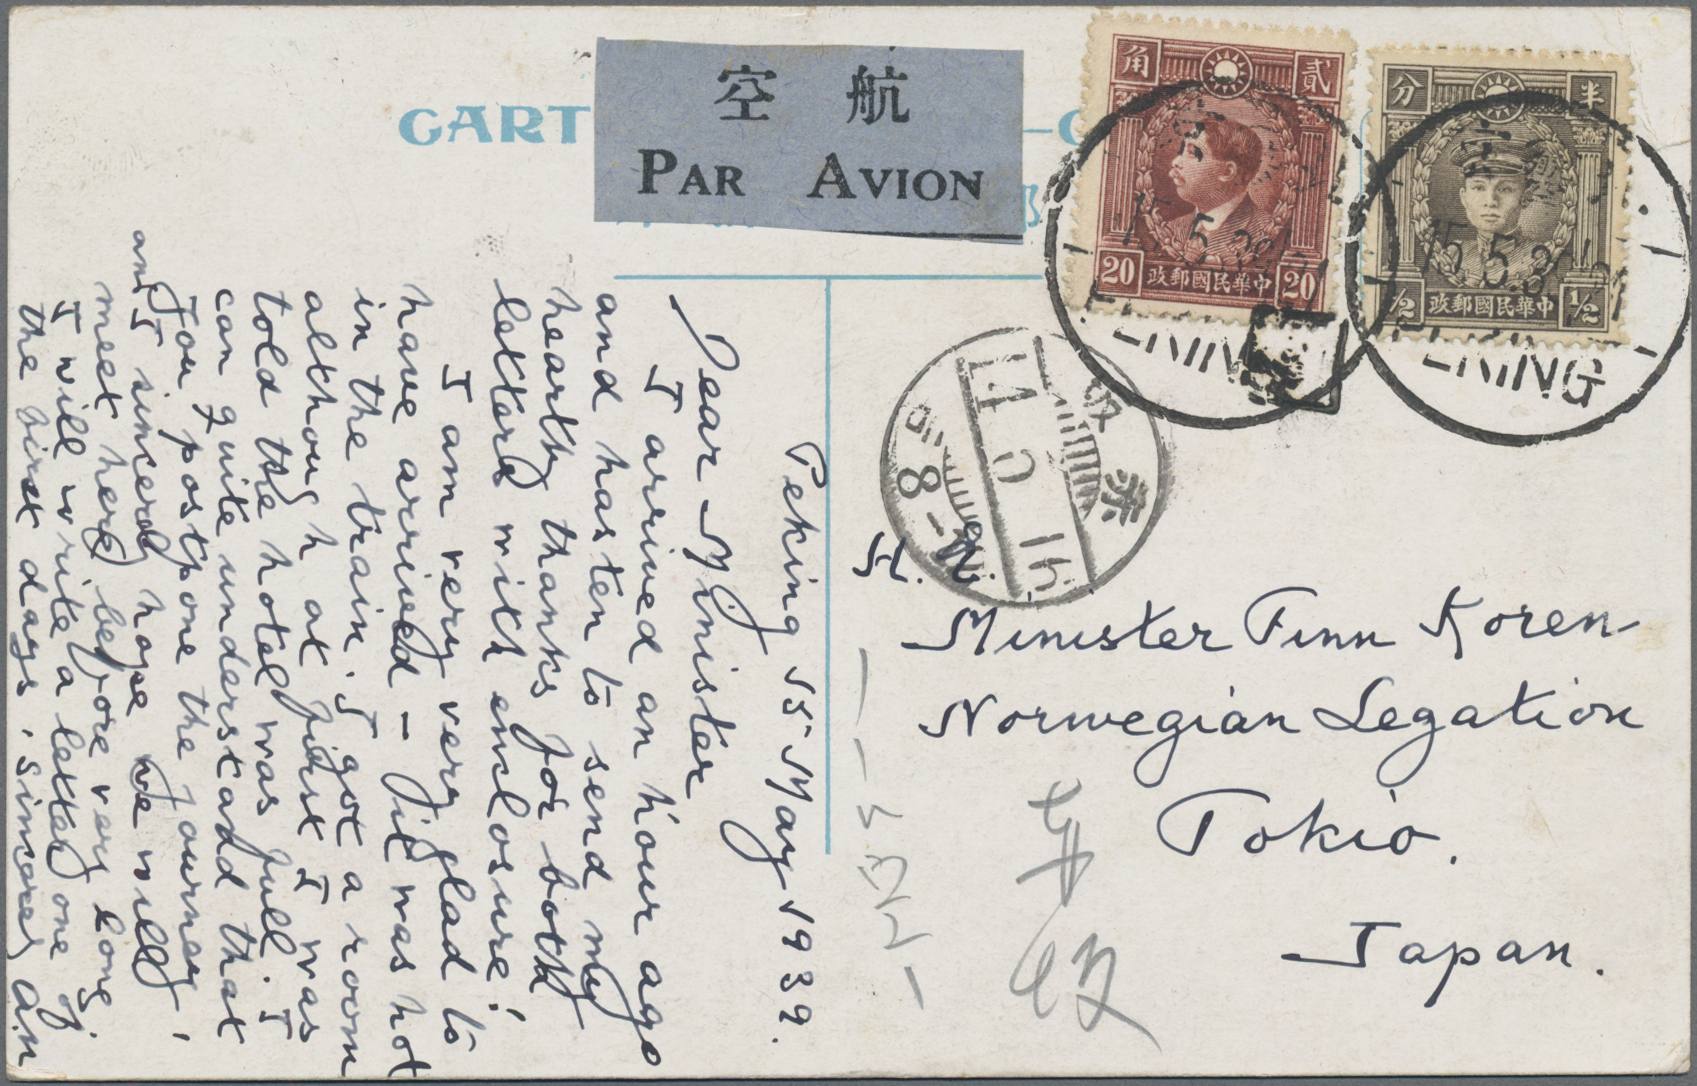 CART
空 航
PAR AVION
角 貳
20 政郵國民華中 20
分 半
1/2 政郵國民華中 1/2
15.5.39
PEKING
15.5.39
PEKING
14
8-
H. E.
Minister Finn Koren
Norwegian Legation
Tokio.
Japan.
Peking 15 May 1939.
Dear Minister
I arrived an hour ago
and hasten to send my
hearty thanks for both
letters with enclosure!
I am very very glad to
have arrived – it was hot
in the train. I got a room
although at first I was
told the hotel was full. I
can quite understand that
you postpone the journey,
and I sincerely hope we will
meet here before very long.
I will write a letter one of
the first days. Sincerely